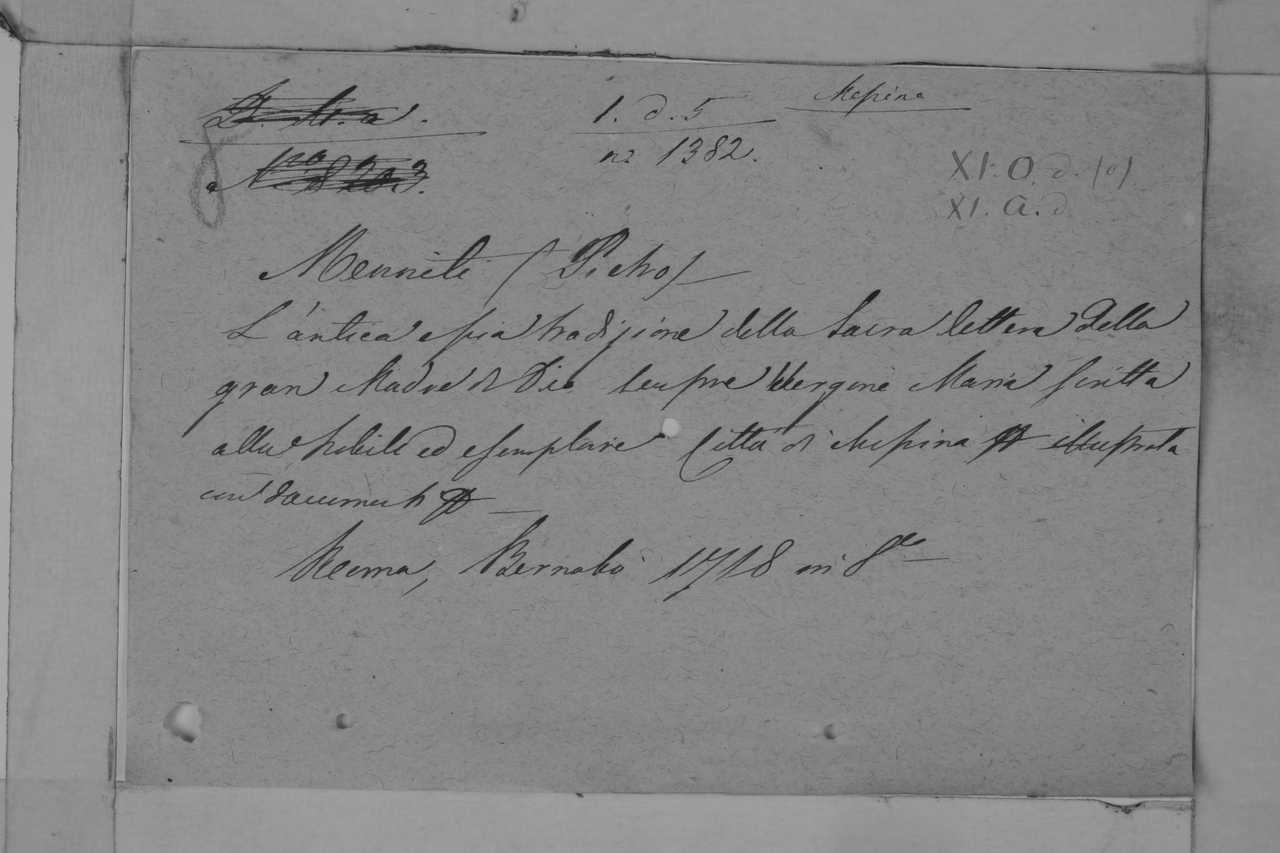 1. d. 5
Messina
nº 1382.
No 8203.
XI. O. d. (o)
XI. a. d
Mennite (Pietro)
L'antica e pia tradizione della Sacra lettera della
gran Madre di Dio sempre Vergine Maria scritta
alla nobile ed esemplare Città di Messina illustrata
con documenti
Roma, Bernabò 1718 in 8º